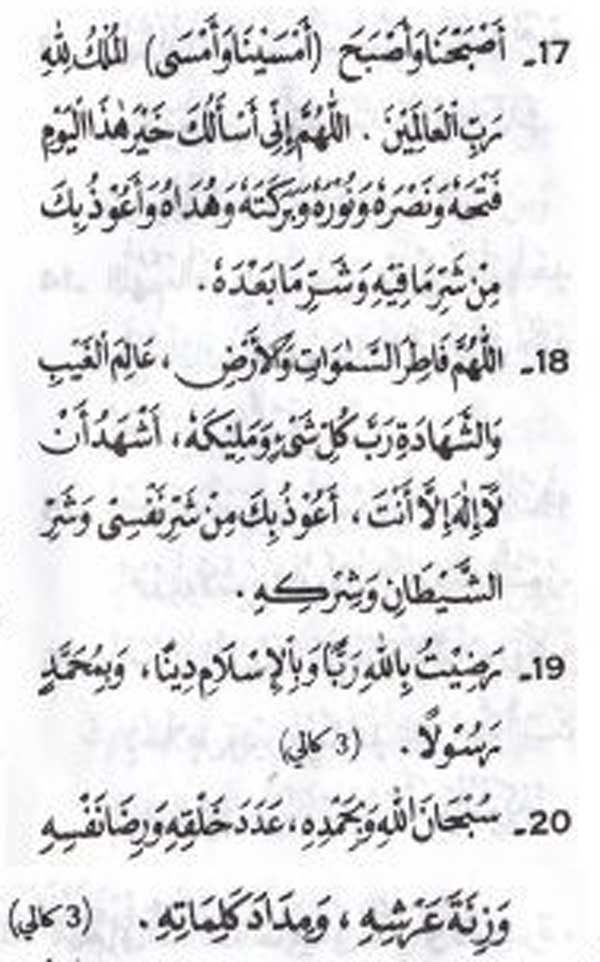 17ـ أَصْبَحْنَا وَأَصْبَحَ (أَمْسَيْنَا وَأَمْسَى) الْمُلْكُ لِلّٰهِ
رَبِّ الْعَالَمِيْنَ . اَللّٰهُمَّ إِنِّى أَسْأَلُكَ خَيْرَ هٰذَا الْيَوْمِ
فَتْحَهُ وَنَصْرَهُ وَنُوْرَهُ وَبَرَكَتَهُ وَهُدَاهُ وَأَعُوْذُ بِكَ
مِنْ شَرِّ مَا فِيْهِ وَشَرِّ مَا بَعْدَهُ .
18ـ اَللّٰهُمَّ فَاطِرَ السَّمٰوَاتِ وَالْأَرْضِ ، عَالِمَ الْغَيْبِ
وَالشَّهَادَةِ رَبَّ كُلِّ شَىْءٍ وَمَلِيْكَهُ ، أَشْهَدُ أَنْ
لَّآ إِلٰهَ إِلَّا أَنْتَ ، أَعُوْذُ بِكَ مِنْ شَرِّ نَفْسِىْ وَشَرِّ
الشَّيْطَانِ وَشِرْكِهِ .
19ـ رَضِيْتُ بِاللّٰهِ رَبًّا وَبِالْإِسْلَامِ دِيْنًا ، وَبِمُحَمَّدٍ
رَسُوْلًا . (3 كالي)
20ـ سُبْحَانَ اللّٰهِ وَبِحَمْدِهِ ، عَدَدَ خَلْقِهِ وَرِضَا نَفْسِهِ
وَزِنَةَ عَرْشِهِ ، وَمِدَادَ كَلِمَاتِهِ . (3 كالي)